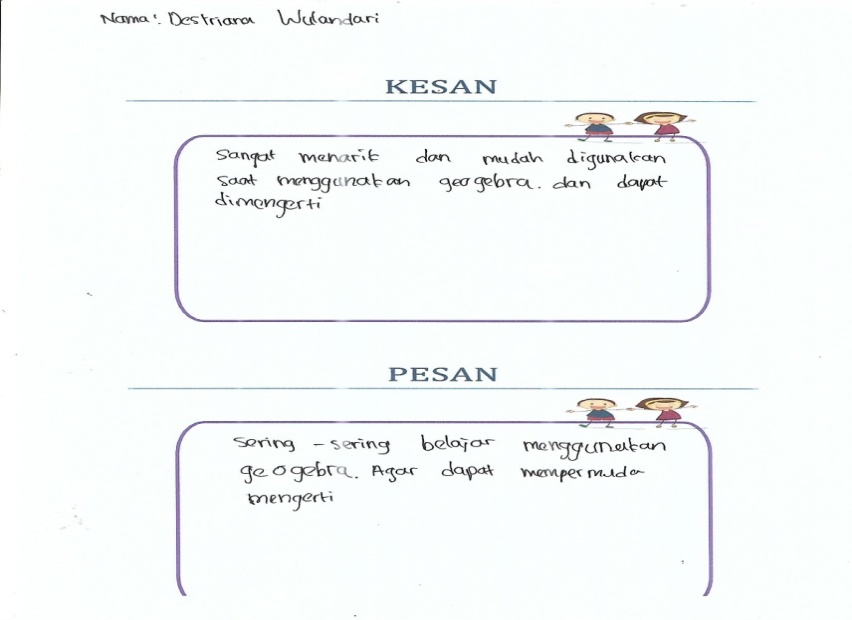 Nama: Destriana Wulandari
KESAN
Sangat menarik dan mudah digunakan
saat menggunakan geogebra. dan dapat
dimengerti
PESAN
Sering - sering belajar menggunakan
geogebra. Agar dapat mempermuda
mengerti